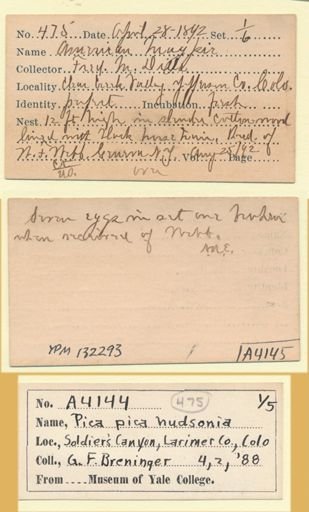 No. 475 Date. April. 28-1892 Set 1/6
Name American magpie
Collector Fred. M. Dille
Locality Valley Jefferson Co. Colo.
Identity. perfect Incubation. fresh
Nest. 12 ft high in slender cotton wood
lined most Black horse hair, Rec'd. of
W. F. Webb Vol Aug 28/92 Page
ova
Seven eggs in set one broken
when received of Webb.
YPM 132293
A4145
No. A4144 475 1/5
Name, Pica pica hudsonia
Loc., Soldiers Canyon, Larimer Co., Colo
Coll., G. F. Breninger 4, 2, '88
From .... Museum of Yale College.